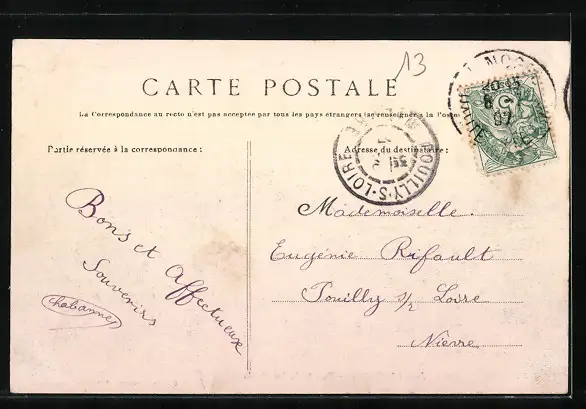 13
CARTE POSTALE
La Correspondance au recto n'est pas acceptée par tous les pays étrangers (se renseigner à la Poste
Partie réservée à la correspondance :
Adresse du destinataire :
POUILLY-S-LOIRE
Bons et Affectueux
Souvenirs
Chabannes
Mademoiselle.
Eugénie Rifault
Pouilly s/z Loire
Nièvre